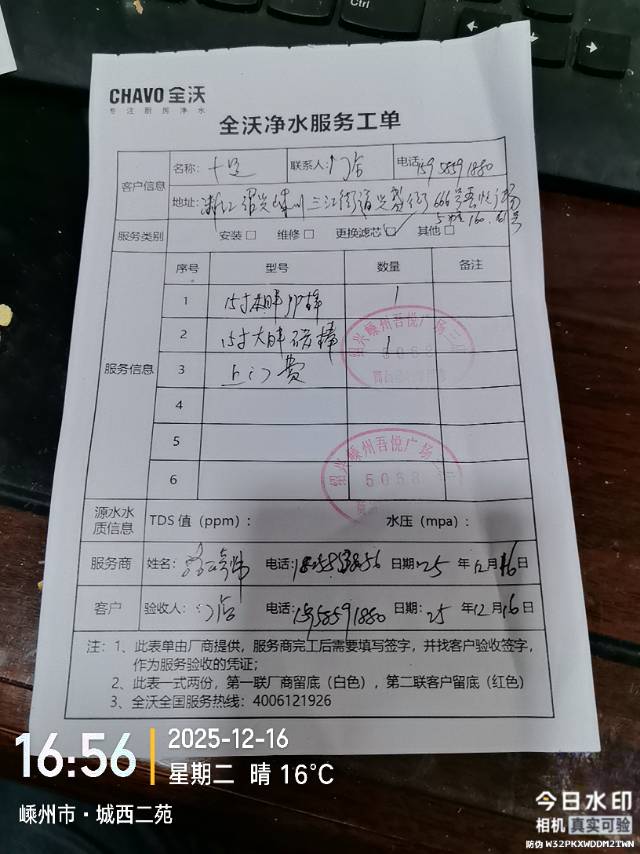 Ctrl
CHAVO 全沃
专注厨房净水
全沃净水服务工单
客户信息 名称: 联系人: 门店 电话 15958591880
地址: 浙江 绍兴 嵊州 三江街道 666号吾悦
服务类别 安装□ 维修□ 更换滤芯☑ 其他□
服务信息 序号 型号 数量 备注
1 15寸 PP棒 1
2 15寸大胖 棒 1
3 上门费
4
5
6
绍兴嵊州吾悦广场三
5088
绍兴嵊州吾悦广场
5088
源水水质信息 TDS 值（ppm）： 水压（mpa）：
服务商 姓名: 电话: 日期: 25 年 12 月 16 日
客户 验收人: 门店 电话: 15958591880 日期: 25 年 12 月 16 日
注：1、此表单由厂商提供，服务商完工后需要填写签字，并找客户验收签字，
作为服务验收的凭证；
2、此表一式两份，第一联厂商留底（白色），第二联客户留底（红色）
3、全沃全国服务热线：4006121926
16:56 2025-12-16
星期二 晴 16°C
嵊州市·城西二苑
今日水印
相机 真实可验
防伪 W32PKXWDDM2TWN